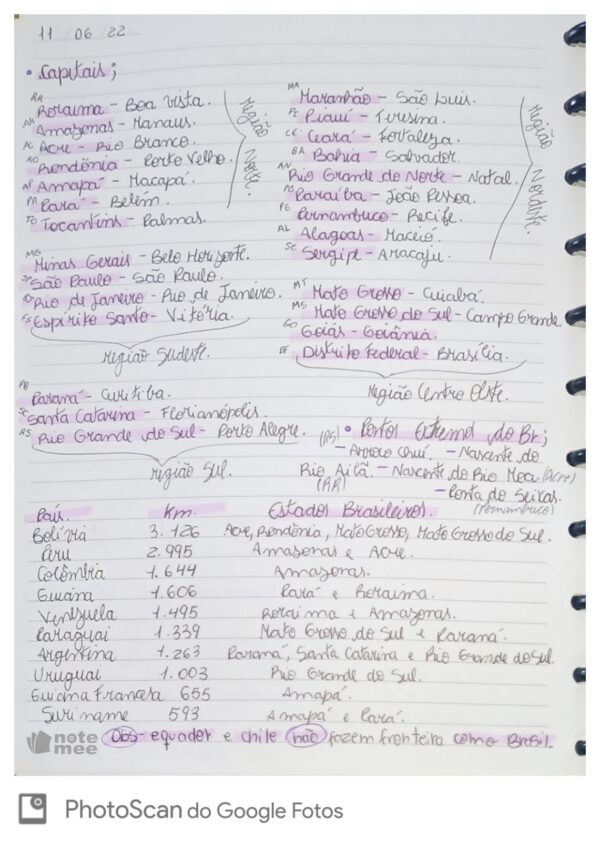 11 06 22
• Capitais;
RR Roraima - Boa Vista.
AM Amazonas - Manaus.
AC Acre - Rio Branco.
RO Rondônia - Porto Velho.
AP Amapá - Macapá.
PA Pará - Belém.
TO Tocantins - Palmas.
Região Norte.
MA Maranhão - São Luis.
PI Piauí - Teresina.
CE Ceará - Fortaleza.
BA Bahia - Salvador.
Rio Grande do Norte - Natal.
PB Paraíba - João Pessoa.
PE Pernambuco - Recife.
AL Alagoas - Maceió.
SE Sergipe - Aracaju.
Região Nordeste.
MG Minas Gerais - Belo Horizonte.
SP São Paulo - São Paulo.
RJ Rio de Janeiro - Rio de Janeiro.
ES Espírito Santo - Vitória.
Região Sudeste.
MT Mato Grosso - Cuiabá.
MS Mato Grosso do Sul - Campo Grande
GO Goiás - Goiânia.
DF Distrito Federal - Brasília.
Região Centro Oeste.
PR Paraná - Curitiba.
SC Santa Catarina - Florianópolis.
RS Rio Grande do Sul - Porto Alegre.
Região Sul.
• Pontos Extremo do Br;
(RS) - Arroio Chuí. - Nascente do
Rio Ailã - Nascente do Rio Moa (Acre)
(RR) - Ponta do Seixas.
(Pernambuco)
País. Km. Estados Brasileiros.
Bolívia 3.126 Acre, Rondônia, Mato Grosso, Mato Grosso do Sul.
Peru 2.995 Amazonas e Acre.
Colômbia 1.644 Amazonas.
Guiana 1.606 Pará e Roraima.
Venezuela 1.495 Roraima e Amazonas.
Paraguai 1.339 Mato Grosso do Sul e Paraná.
Argentina 1.263 Paraná, Santa Catarina e Rio Grande do Sul.
Uruguai 1.003 Rio Grande do Sul.
Guiana Francesa 655 Amapá.
Suriname 593 Amapá e Pará.
Obs - equador e chile não fazem fronteira como Brasil.
note mee
PhotoScan do Google Fotos